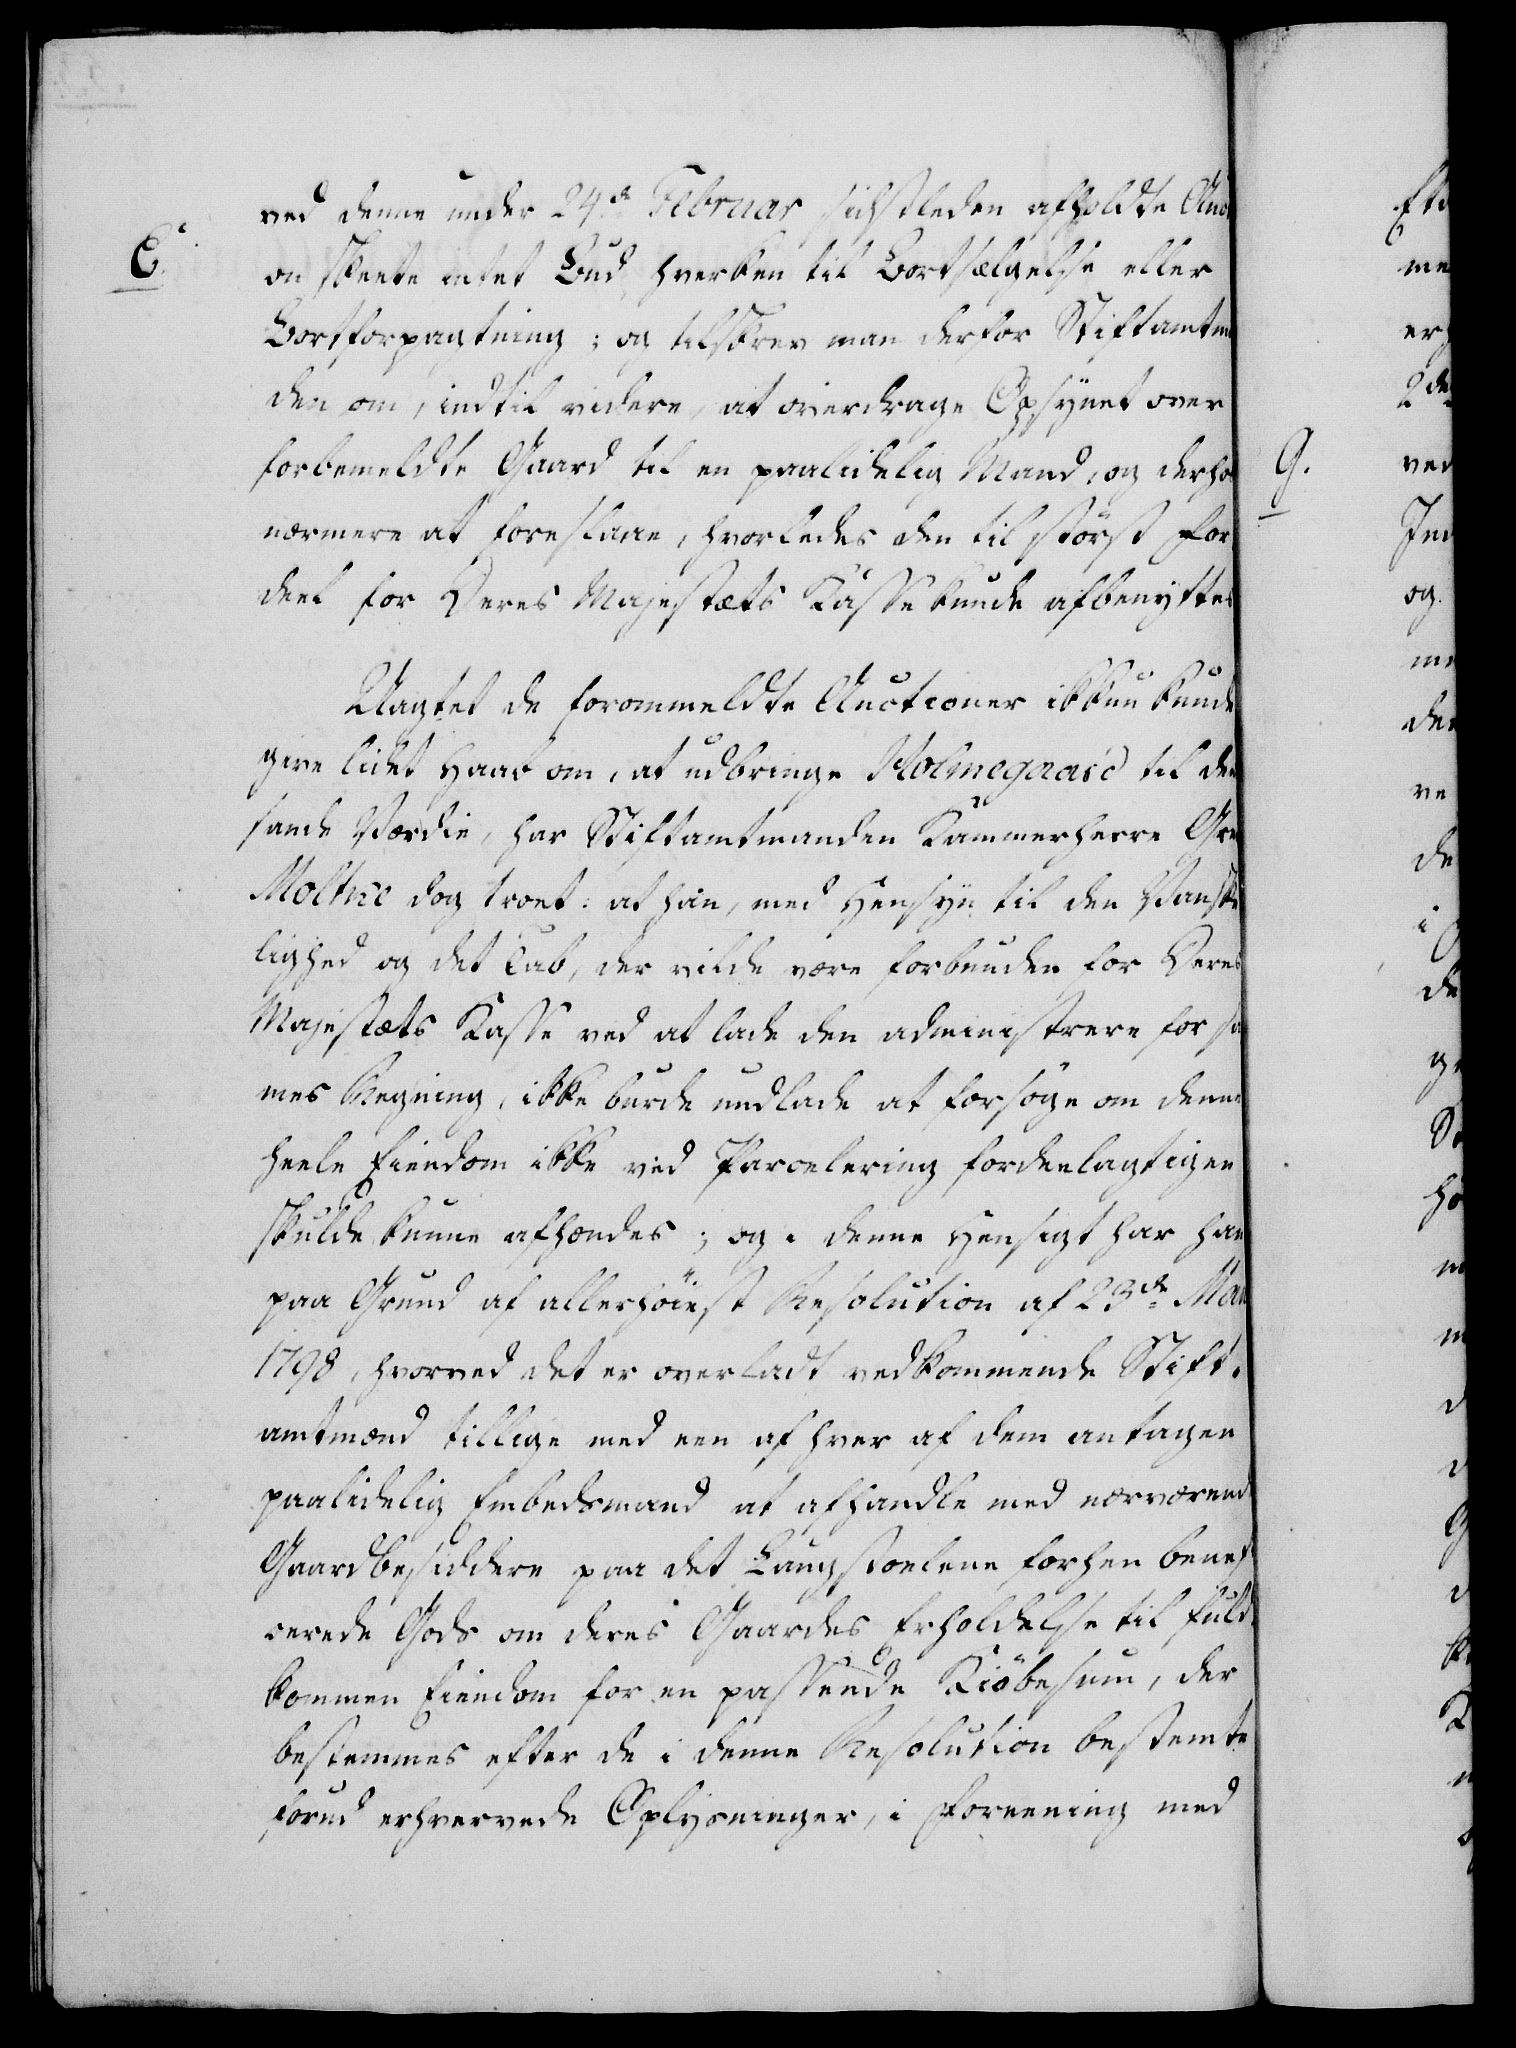 ved denne under 24de Februar sidstleden afholdte Auc
E.
on skeete intet Bud, hverken til Bortsælgelse eller
Bortforpagtning; og tilskrev man derfor Stiftamtm
den om, indtil videre, at overdrage Opsynet over
forbemeldte Gaard til en paalidelig Mand, og derho
nærmere at foreslaae, hvorledes den til störst For
deel for Deres Majestæts Kasse kunde afbenyttes
Uagtet de forommeldte Auctioner ikkun kunde
give lidet Haab om, at udbringe Holmegaard til den
sande Værdie, har Stiftamtmanden Kammerherre Gre
Moltke dog troet: at han, med Hensyn til den Vanske
lighed og det Tab, der vilde være forbunden for Deres
Majestæts Kasse ved at lade den administrere for sa
mes Regning, ikke burde undlade at forsöge om denne
heele Eiendom ikke ved Parcelering fordeelagtigen
skulde kunne afhændes; og i denne Hensigt har han
paa Grund af allerhöiest Resolution af 23de Mai
1798, hvorved det er overladt vedkommende Stift-
amtmænd tillige med een af hver af dem antagen
paalidelig Embedsmand at afhandle med nærværend
Gaardbesiddere paa det Laugstoelene forhen benefi
cerede Gods om deres Gaardes Erholdelse til fuld-
kommen Eiendom for en passende Kiöbesum, der
bestemmes efter de i denne Resolution bestemte
forud erhvervede Oplysninger, i Foreening med
G.